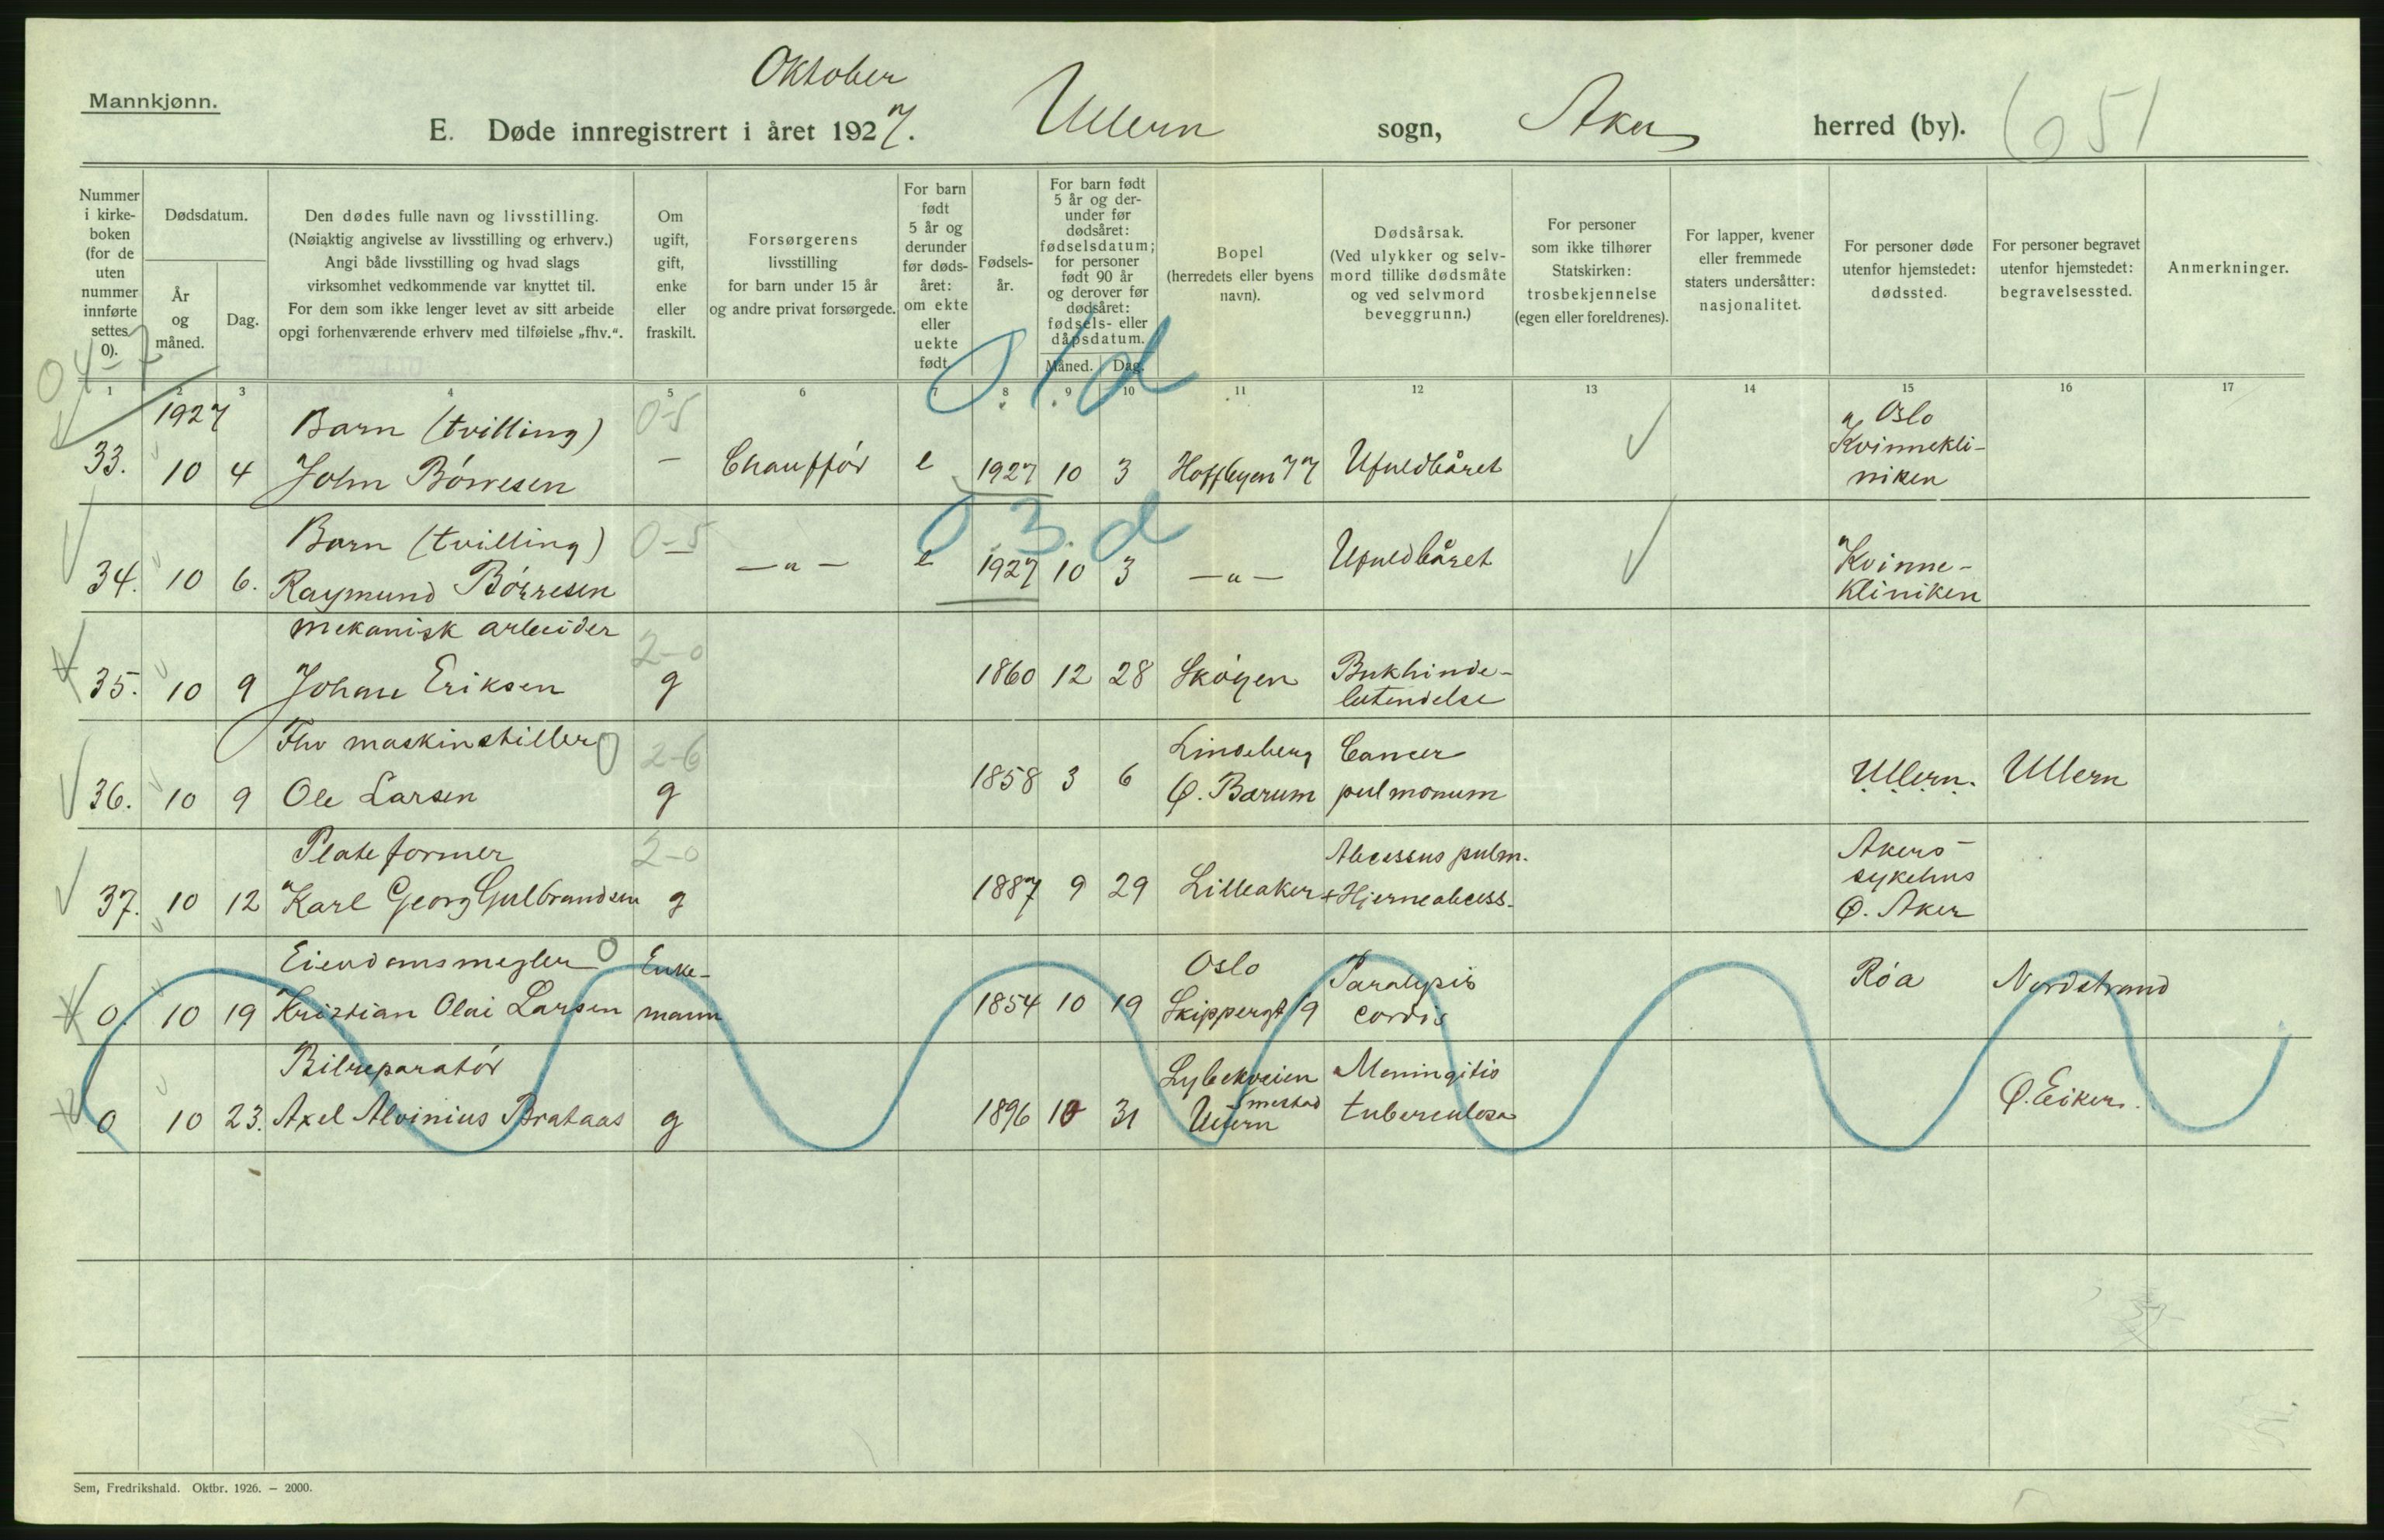 Oktober
Mannkjønn.
E. Døde innregistrert i året 1927. Ullern sogn, Aker herred (by). 651
Nummer i kirke-boken (for de uten nummer innførte settes 0).
Dødsdatum.
År og måned.
Dag.
Den dødes fulle navn og livsstilling.
(Nøiaktig angivelse av livsstilling og erhverv.)
Angi både livsstilling og hvad slags
virksomhet vedkommende var knyttet til.
For dem som ikke lenger levet av sitt arbeide
opgi forhenværende erhverv med tilføielse „fhv.“.
Om ugift, gift, enke eller fraskilt.
Forsørgerens
livsstilling
for barn under 15 år
og andre privat forsørgede.
For barn født 5 år og derunder før døds-året: om ekte eller uekte født.
Fødsels-år.
For barn født 5 år og der-under før dødsåret: fødselsdatum; for personer født 90 år og derover før dødsåret: fødsels- eller dåpsdatum.
Måned. Dag.
Bopel
(herredets eller byens
navn).
Dødsårsak.
(Ved ulykker og selv-
mord tillike dødsmåte
og ved selvmord
beveggrunn.)
For personer
som ikke tilhører
Statskirken:
trosbekjennelse
(egen eller foreldrenes).
For lapper, kvener
eller fremmede
staters undersåtter:
nasjonalitet.
For personer døde
utenfor hjemstedet:
dødssted.
For personer begravet
utenfor hjemstedet:
begravelsessted.
Anmerkninger.
1 2 3 4 5 6 7 8 9 10 11 12 13 14 15 16 17
04-7
0.1.d
1927 Barn (tvilling) 0-5 Oslo
33. 10 4 John Börresen — Chaufför e 1927 10 3 Hoffbyen 77 Ufuldbåret Kvinnekli-
niken
0.3.d
Barn (tvilling) 0-5
34. 10 6. Raymund Börresen — — „ — e 1927 10 3 — „ — Ufuldbåret Kvinne-
kliniken
mekanisk arbeider 2-0
35. 10 9 Johan Eriksen g 1860 12 28 Skøyen Bukhinde-
betendelse
Fhv maskinstiller 0 2-6 Lindeberg Cancer
36. 10 9 Ole Larsen g 1858 3 6 Ø. Bærum pulmonum Ullern. Ullern
Plateformer 2-0 Abcessus pulm. Akers
37. 10 12 Karl Georg Gulbrandsen g 1887 9 29 Lilleaker + Hjerneabcess. sykehus
Ø. Aker
Eiendomsmegler 0 Enke- Oslo Paralysis Röa Nordstrand
0. 10 19 Kristian Olai Larsen mann 1854 10 19 Skippergt 19 cordis
Bilreparatör Lybekveien Meningitis
0 10 23. Axel Alvinius Brataas g 1896 10 31 Ullern tuberculosa Ø. Eiker.
Sem, Fredrikshald. Oktbr. 1926. — 2000.